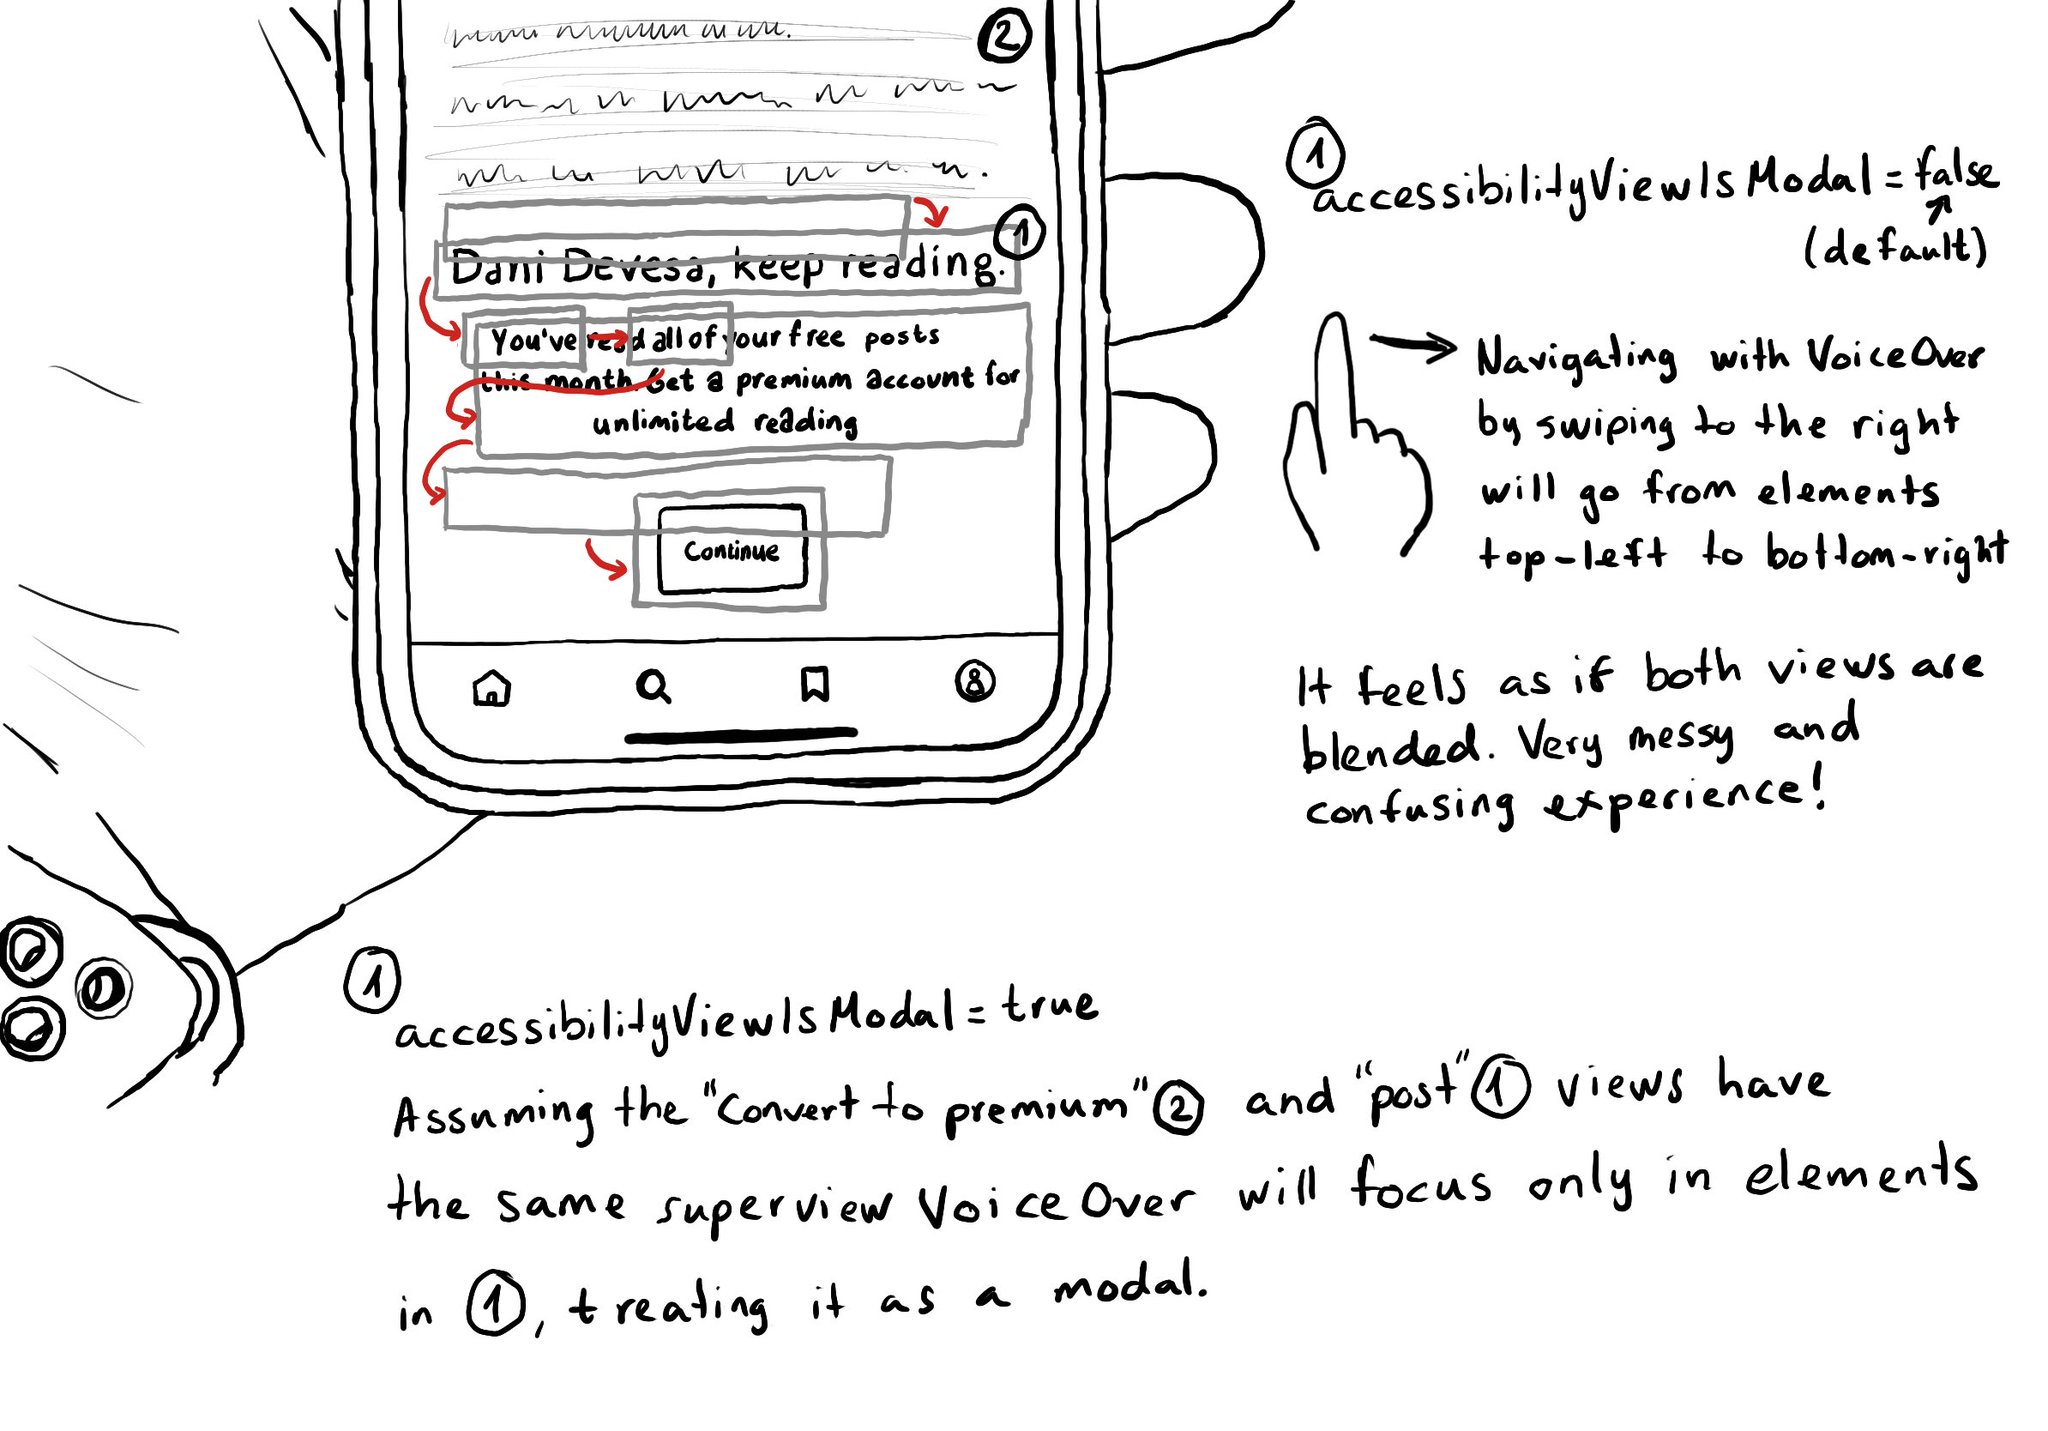 2
1
Dani Devesa, keep reading.
You've read all of your free posts
this month. Get a premium account for
unlimited reading
Continue
1
accessibilityViewIsModal = false
(default)
Navigating with VoiceOver
by swiping to the right
will go from elements
top-left to bottom-right
It feels as if both views are
blended. Very messy and
confusing experience!
1
accessibilityViewIsModal = true
Assuming the "Convert to premium" 2 and "post" 1 views have
the same superview VoiceOver will focus only in elements
in 1, treating it as a modal.